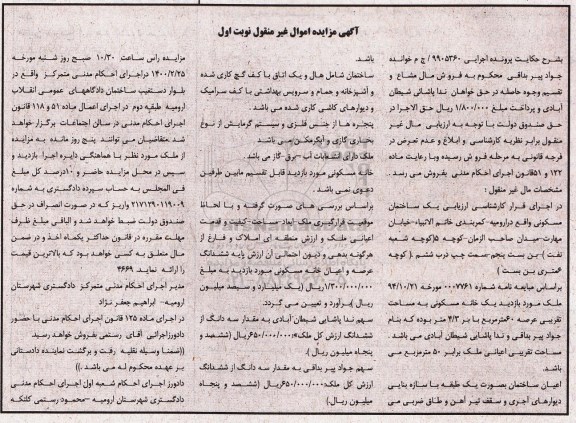 آگهی مزایده اموال غیر منقول نوبت اول
بشرح حکایت پرونده اجرایی ۹۹۰۵۳۶۰ / ج م خوانده
جواد پیر بداقی محکوم به فروش مال مشاع و
تقسیم وجوه حاصله در حق خواهان ندا پاشائی شیطان
آبادی و پرداخت مبلغ ۱/۸۰۰/۰۰۰ ریال حق الاجرا در
حق صندوق دولت با توجه به ارزیابی مال غیر
منقول برابر نظریه کارشناسی و ابلاغ و عدم تعرض در
فرجه قانونی به مرحله فروش رسیده وبا رعایت ماده
۱۲۲ و ۵۱قانون اجرای احکام مدنی بفروش می رسد .
مشخصات مال غیر منقول :
در اجرای قرار کارشناسی ارزیابی یک ساختمان
مسکونی واقع درارومیه-کمربندی خاتم الانبیاء-خیابان
مهارت-میدان صاحب الزمان-کوچه ۵(کوچه شعبه
نفت )-بن بست پنجم-سمت چپ درب ششم .( کوچه
۶متری بن بست )
براساس مبایعه نامه شماره ۰۰۰۷۷۶۱ مورخه ۹۴/۱۰/۲۱
ملک مورد بازدید یک خانه مسکونی به مساحت
تقریبی عرصه ۶۰مترمربع با بر ۴/۳ متر بوده که بنام
جواد پیر بداقی و ندا پاشایی شیطان آبادی می باشد .
مساحت تقریبی اعیانی ملک برابر ۵۰ مترمربع می
باشد .
اعیان ساختمان بصورت یک طبقه با سازه بنایی
دیوارهای آجری و سقف تیر آهن و طاق ضربی می
باشد.
ساختمان شامل هال و یک اتاق با کف گچ کاری شده
و آشپزخانه و حمام و سرویس بهداشتی با کف سرامیک
و دیوارهای کاشی کاری شده می باشد .
پنجره ها از جنس فلزی و سیستم گرمایش از نوع
بخاری گازی و آبگرمکن می باشد
ملک دارای انشعابات آب -برق -گاز می باشد .
خانه مسکونی مورد بازدید قابل تقسیم مابین طرفین
دعوی نمی باشد .
براساس بررسی های صورت گرفته و با لحاظ
موقعیت قرارگیری ملک-ابعاد-مساحت-کیفیت و قدمت
اعیانی ملک و ارزش منطقه ای املاک و فارغ از
هرگونه بدهی و دیون احتمالی آن ارزش پایه ششدانگ
عرصه و اعیان خانه مسکونی مورد بازدید به مبلغ
۱/۳۰۰/۰۰۰/۰۰۰ریال (یک میلیارد و سیصد میلیون
ریال )برآورد و تعیین می گردد.
سهم ندا پاشایی شیطان آبادی به مقدار سه دانگ از
ششدانگ ارزش کل ملک:۶۵۰/۰۰۰/۰۰۰ریال (ششصد و
پنجاه میلیون ریال ).
سهم جواد پیر بداقی به مقدار سه دانگ از ششدانگ
ارزش کل ملک:۶۵۰/۰۰۰/۰۰۰ریال (ششصد و پنجاه
میلیون ریال.)
مزایده راس ساعت ۱۰/۳۰ صبح روز شنبه مورخه
۱۴۰۰/۲/۲۵ دراجرای احکام مدنی متمرکز واقع در
بلوار دستغیب ساختمان دادگاههای عمومی انقلاب
ارومیه طبقه دوم در اجرای اعمال ماده ۵۱ و ۱۱۸ قانون
اجرای احکام مدنی در سالن اجتماعات برگزار خواهد
شد متقاضیان می توانند پنج روز مانده به مزایده
از ملک مورد نظر با هماهنگی دایره اجرا بازدید و
سپس در محل مزایده حاضر و ۱۰درصد کل مبلغ
فی المجلس به حساب سپرده دادگستری به شماره
۲۱۷۱۲۹۰۱۱۹۰۰۹ واریز که در صورت انصراف در حق
صندوق دولت ضبط خواهد شد و الباقی مبلغ ظرف
مهلت مقرره در قانون حداکثر یکماه اخذ و در ضمن
مال متعلق به کسی خواهد بود که بالاترین قیمت
را ارائه نماید ۴۶۶۹
مدیر اجرای احکام مدنی متمرکز دادگستری شهرستان
ارومیه- ابراهیم جعفر نژاد
در اجرای ماده ۱۲۵ قانون اجرای احکام مدنی با حضور
دادورزاجرائی آقای رستمی بفروش خواهد رسید .
((ضمنا وسیله نقلیه رفت و برگشت نماینده دادستانی
بر عهده محکوم له می باشد .))
دادورز اجرای احکام شعبه اول اجرای احکام مدنی
دادگستری شهرستان ارومیه -محمود رستمی کلتکه